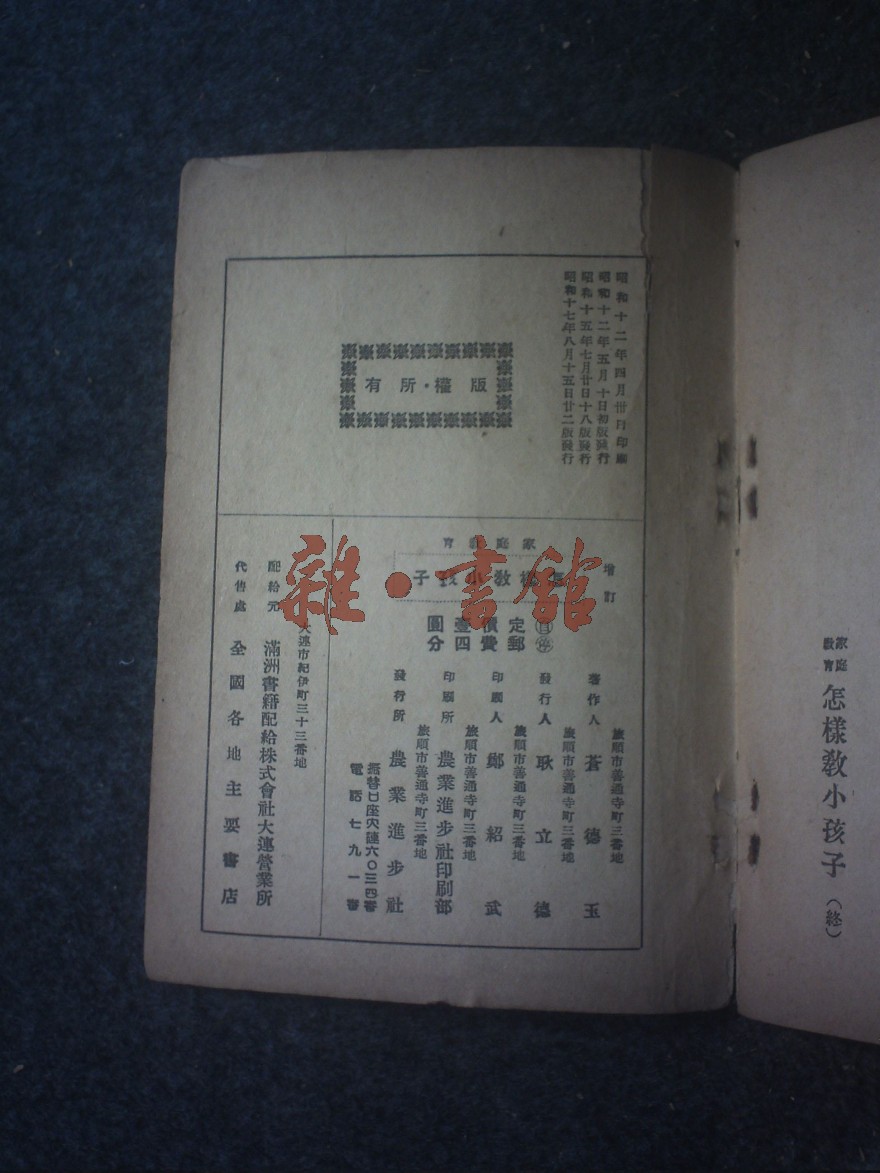 家庭教育 怎樣教小孩子 (終)
昭和十二年四月廿日印刷
昭和十二年五月十日初版發行
昭和十五年七月廿日十八版發行
昭和十七年八月十五日廿二版發行
版權·所有
增訂
家庭教育
怎樣教小孩子
定價壹圓
郵費四分
旅順市善通寺町三番地
著作人 蒼德玉
旅順市善通寺町三番地
發行人 耿立德
旅順市善通寺町三番地
印刷人 鄭紹武
旅順市善通寺町三番地
印刷所 農業進步社印刷部
旅順市善通寺町三番地
發行所 農業進步社
振替口座大連六〇三四番
電話七九一番
大連市紀伊町三十三番地
配給元 滿洲書籍配給株式會社大連營業所
代售處 全國各地主要書店
雜·書館